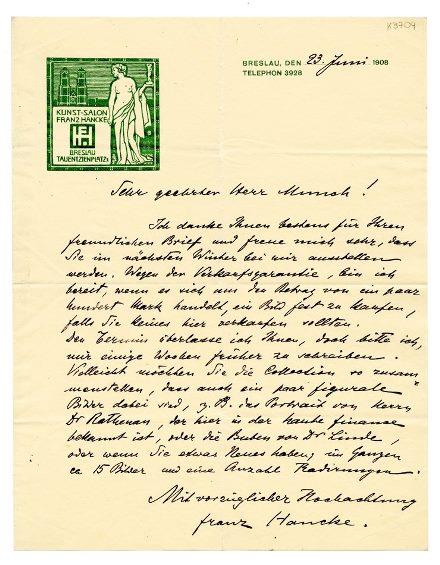 K3704
BRESLAU, DEN 23. Juni 1908
TELEPHON 3928
KUNST-SALON
FRANZ HANCKE
BRESLAU
TAUENTZIENPLATZ
Sehr geehrter Herr Munch!
Ich danke Ihnen bestens für Ihren
freundlichen Brief und freue mich sehr, dass
Sie im nächsten Winter bei mir ausstellen
werden. Wegen der Verkaufsgarantie, bin ich
bereit, wenn es sich um den Betrag von ein paar
hundert Mark handelt, ein Bild fest zu kaufen,
falls Sie keines hier verkaufen sollten.
Den Termin überlasse ich Ihnen, doch bitte ich,
mir einige Wochen früher zu schreiben.
Vielleicht möchten Sie die Collection so zusam
menstellen, dass auch ein paar figurale
Bilder dabei sind, z. B. das Portrait von Herrn
Dr Rathenau, der hier in der haute finance
bekannt ist, oder die Buben von Dr Linde,
oder wenn Sie etwas Neues haben; im Ganzen
ca 15 Bilder und eine Anzahl Radirungen.
Mit vorzüglicher Hochachtung
Franz Hancke.